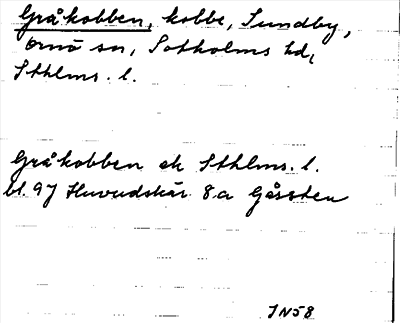 Gråkobben, kobbe, Sundby,
Ornö sn, Sotholms hd,
Sthlms. l.
Gråkobben ek Sthlms. l.
bl. 97 Huvudskär 8a Gåssten
JN58